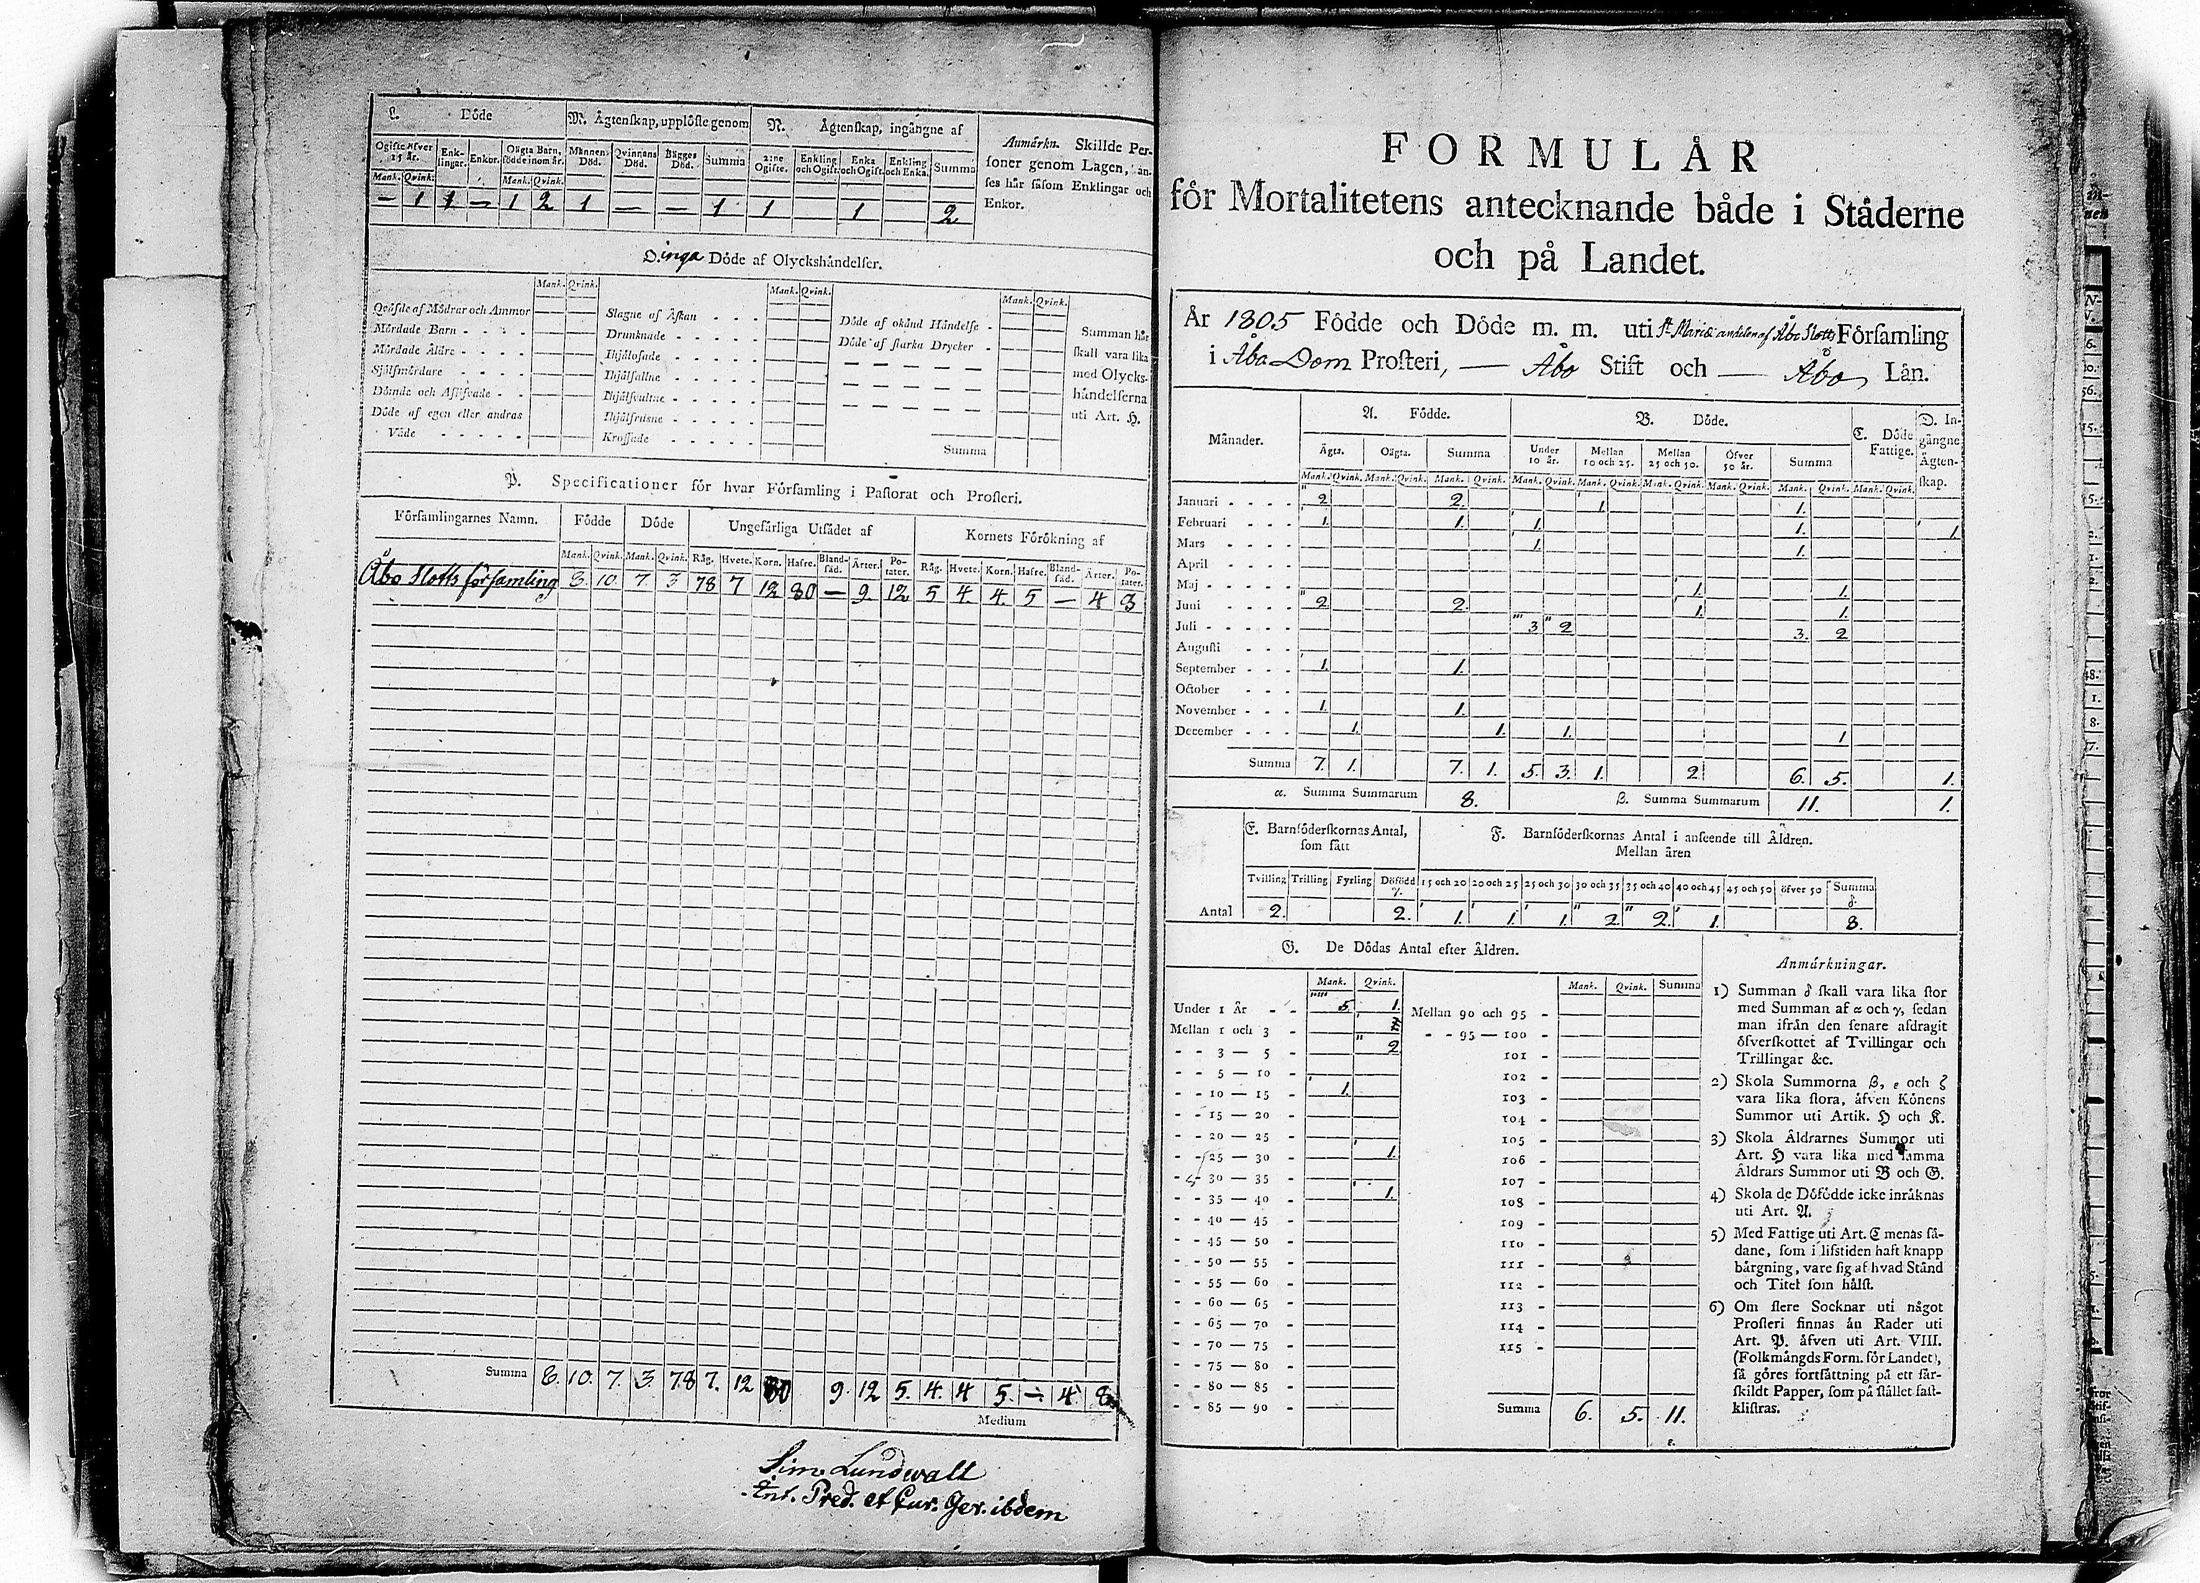 L. Döde
M. Ägtenskap, upplöste genom
N. Ägtenskap, ingångne af
Anmärkn. Skillde Personer genom Lagen, anses här såsom Enklingar och Enkor.
Ogifte öfver 15 år. Enklingar. Enkor. Oägta Barn, födde inom år. Mannens Död. Qvinnans Död. Bägges Död. Summa 2:ne Ogifte. Enkling och Ogift. Enka och Ogift. Enkling och Enka. Summa
Mank. Qvink. Mank. Qvink.
— 1 1 — 1 2 1 — — 1 1 1 2
O. inga Döde af Olyckshändelser.
Mank. Qvink. Mank. Qvink. Mank. Qvink.
Qväfde af Mödrar och Ammor
Mördade Barn - - - -
Mördade Äldre - - - -
Själfmördare - - - -
Dömde och Aflifvade - -
Döde af egen eller andras
Våde - - - - -
Slagne af Åskan - - -
Drunknade - - - - -
Ihjälosade - - - - -
Ihjälfallne - - - - -
Ihjälsvultne - - - - -
Ihjälfrusne - - - - -
Krossade - - - - -
Döde af okänd Händelse -
Döde af starka Drycker -
Summa
Summan här
skall vara lika
med Olycks-
händelserna
uti Art. H.
P. Specificationer för hvar Församling i Pastorat och Prosteri.
Församlingarnes Namn. Födde Döde Ungefärliga Utsädet af Kornets Förökning af
Mank. Qvink. Mank. Qvink. Råg. Hvete. Korn. Hafre. Blandsäd. Ärter. Potater. Råg. Hvete. Korn. Hafre. Blandsäd. Ärter. Potater.
Åbo Slotts församling 8. 10. 7. 3. 78 7 12 80 — 9. 12 5 4. 4. 5 — 4 8
Summa 8. 10. 7. 3. 78 7. 12 80 9. 12 5. 4. 4 5. — 4. 8
Medium
Sim. Lundwall
Pred. et Cur. Ger. ibidem
FORMULÄR
för Mortalitetens antecknande både i Städerne
och på Landet.
År 1805 Födde och Döde m. m. uti St Mariæ andelen af Åbo Slotts Församling
i Åbo Dom Prosteri, — Åbo Stift och — Åbo Län.
Månader. A. Födde. B. Döde. C. Döde Fattige. D. Ingångne Ägtenskap.
Ägta. Oägta. Summa Under 10 år. Mellan 10 och 25. Mellan 25 och 50. Öfver 50 år. Summa
Mank. Qvink. Mank. Qvink. Mank. Qvink. Mank. Qvink. Mank. Qvink. Mank. Qvink. Mank. Qvink. Mank. Qvink. Mank. Qvink.
Januari - - - - 2 2. 1. 1.
Februari - - - - 1. 1. 1. 1. 1
Mars - - - - 1. 1.
April - - - -
Maj - - - - 1. 1.
Juni - - - - 2 2 1. 1.
Juli - - - - 3 2 3. 2
Augusti - - -
September - - - 1. 1.
October - - -
November - - - 1. 1.
December - - - 1. 1. 1. 1
Summa 7. 1. 7. 1. 5. 3. 1. 2 6. 5. 1.
α. Summa Summarum 8. β. Summa Summarum 11. 1.
E. Barnföderskornas Antal, som fått
F. Barnföderskornas Antal i anseende till Åldren.
Mellan åren
Tvilling Trilling Fyrling Dödfödd γ. 15 och 20 20 och 25 25 och 30 30 och 35 35 och 40 40 och 45 45 och 50 öfver 50 Summa δ.
Antal 2. 2. 1. 1. 1. 2. 2. 1. 8.
G. De Dödas Antal efter Åldren.
Mank. Qvink. Mank. Qvink. Summa
Under 1 År - - 5. 1.
Mellan 1 och 3 -
- - 3 — 5 - 2
- - 5 — 10 -
- - 10 — 15 - 1.
- - 15 — 20 -
- - 20 — 25 -
- - 25 — 30 - 1.
- - 30 — 35 -
- - 35 — 40 - 1.
- - 40 — 45 -
- - 45 — 50 -
- - 50 — 55 -
- - 55 — 60 -
- - 60 — 65 -
- - 65 — 70 -
- - 70 — 75 -
- - 75 — 80 -
- - 80 — 85 -
- - 85 — 90 -
Mellan 90 och 95 -
- - 95 — 100 -
101 -
102 -
103 -
104 -
105 -
106 -
107 -
108 -
109 -
110 -
111 -
112 -
113 -
114 -
115 -
Summa 6. 5. 11.
ε.
Anmärkningar.
1) Summan δ skall vara lika stor
med Summan af α och γ, sedan
man ifrån den senare afdragit
öfverskottet af Tvillingar och
Trillingar &c.
2) Skola Summorna β, ε och ζ
vara lika stora, äfven Könens
Summor uti Artik. H och K.
3) Skola Åldrarnes Summor uti
Art. H vara lika med samma
Åldrars Summor uti B och G.
4) Skola de Döfödde icke inräknas
uti Art. A.
5) Med Fattige uti Art. C menas så-
dane, som i lifstiden haft knapp
bärgning, vare sig af hvad Stånd
och Titel som hälst.
6) Om flere Socknar uti något
Prosteri finnas än Rader uti
Art. P. äfven uti Art. VIII.
(Folkmängds Form. för Landet),
så göres fortsättning på ett sär-
skildt Papper, som på stället fast-
klistras.